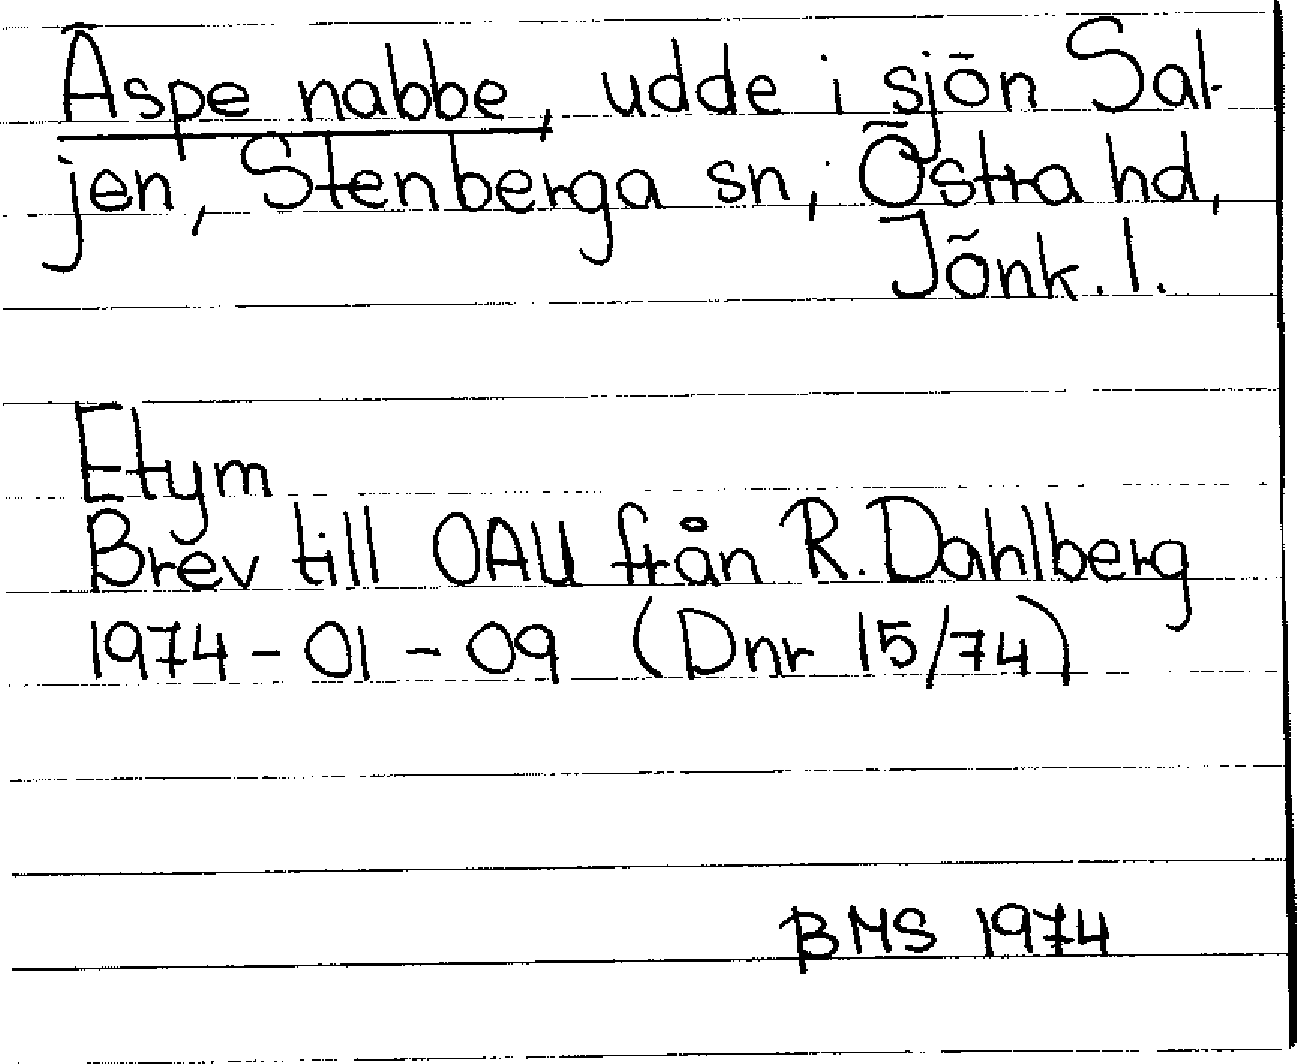 Äspe nabbe, udde i sjön Sal-
jen, Stenberga sn, Östra hd,
Jönk. l.
Etym
Brev till OAU från R. Dahlberg
1974-01-09 (Dnr 15/74)
BMS 1974